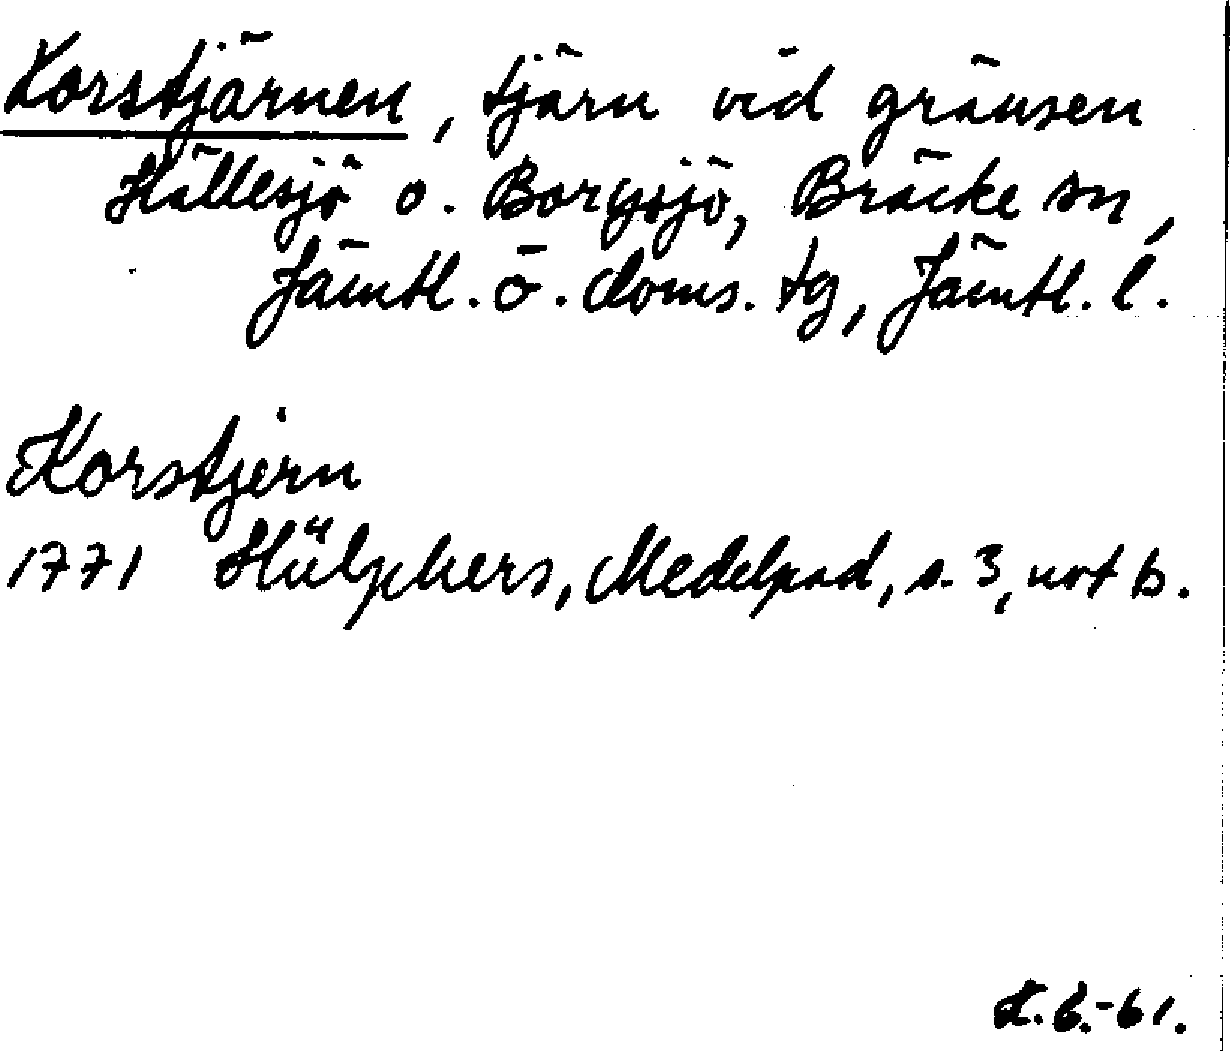 Korstjärnen, tjärn vid gränsen
Hällesjö o. Borgsjö, Bräcke sn,
Jämtl. ö. doms. tg, Jämtl. l.
Korstjern
1771 Hülphers, Medelpad, s. 3, not b.
K.B.-61.